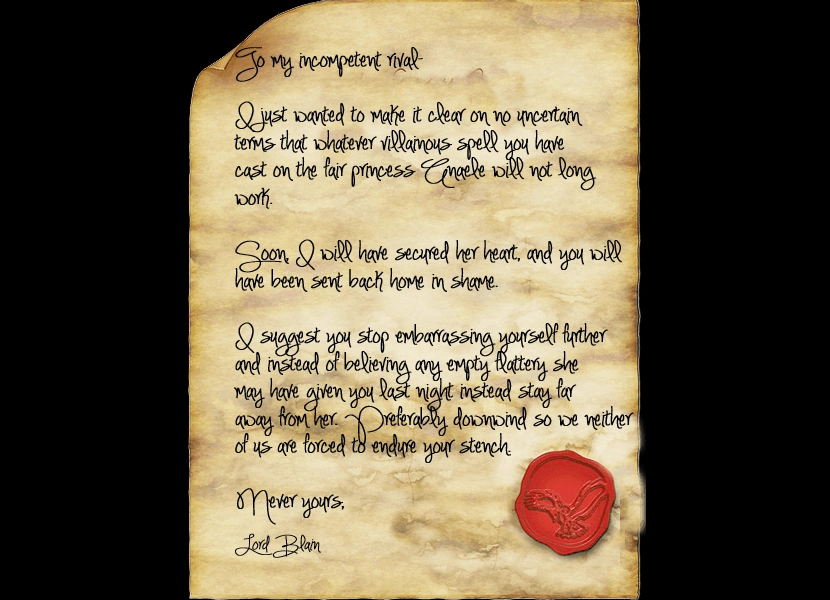 To my incompetent rival-
I just wanted to make it clear on no uncertain
terms that whatever villainous spell you have
cast on the fair princess Gnaele will not long
work.
Soon, I will have secured her heart, and you will
have been sent back home in shame.
I suggest you stop embarrassing yourself further
and instead of believing any empty flattery she
may have given you last night instead stay far
away from her. Preferably downwind so we neither
of us are forced to endure your stench.
Never yours,
Lord Blain